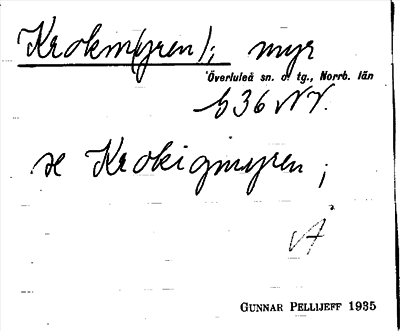 Krokm(yren); myr
Överluleå sn. o. tg., Norrb. län
b36 NV.
se Krokigmyren;
Å
GUNNAR PELLIJEFF 1935